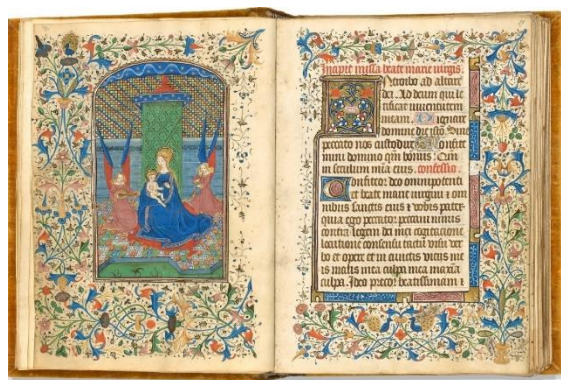 Incipit missa beate marie virgis
Introibo ad altare
dei. Ad deum qui le
tificat iuventutem
meam. Dignare
domine die isto Sine
peccato nos custodire Confite
mini domino qm bonus: Qm
in seculum mia eius. confessio.
Confiteor deo omnipotenti
et beate marie virgini z om
nibus sanctis eius z vobis pater
quia ego peccator: peccavi nimis
contra legem dei mei cogitacione
locutione consensu tactu visu ver
bo et opere et in cunctis viciis me
is malis mea culpa mea maxia
culpa. Ideo precor beatissimam z